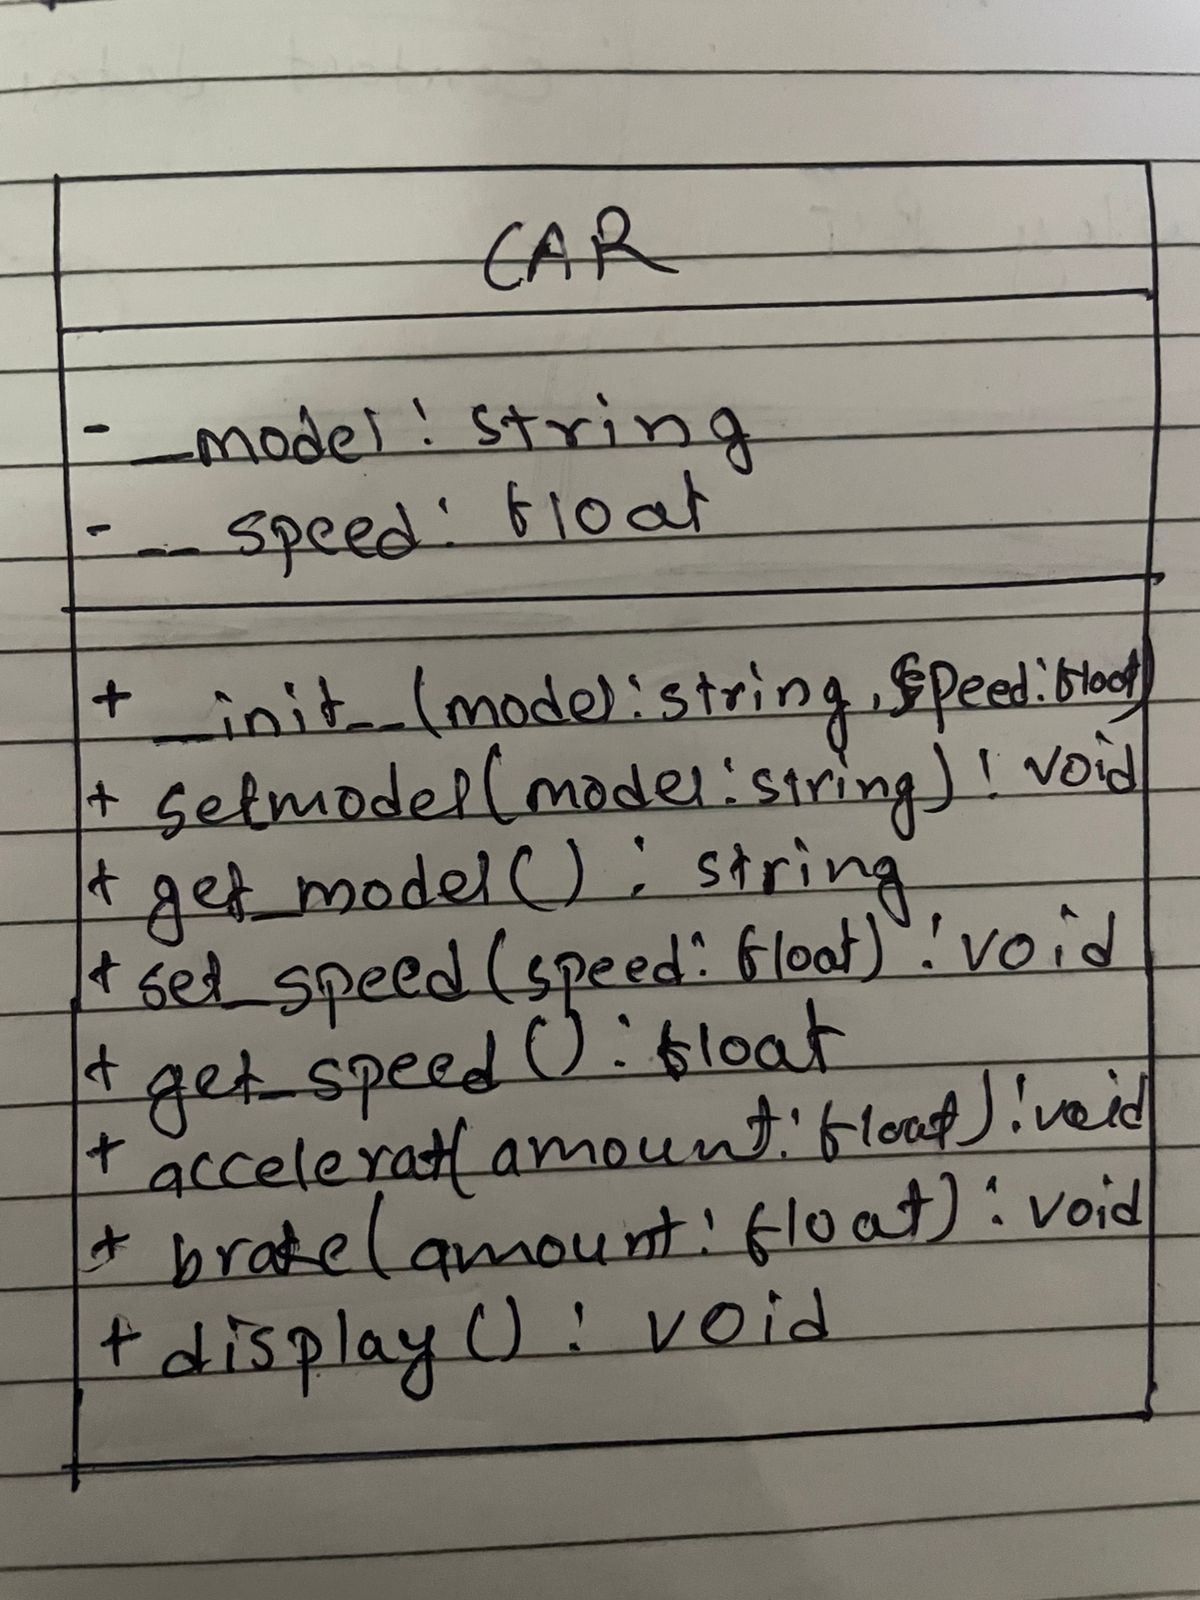 CAR
- __model: string
- __speed: float
+ __init__(model: string, speed: float)
+ setmodel(model: string): void
+ get_model(): string
+ set_speed(speed: float): void
+ get_speed(): float
+ accelerat(amount: float): void
+ brake(amount: float): void
+ display(): void